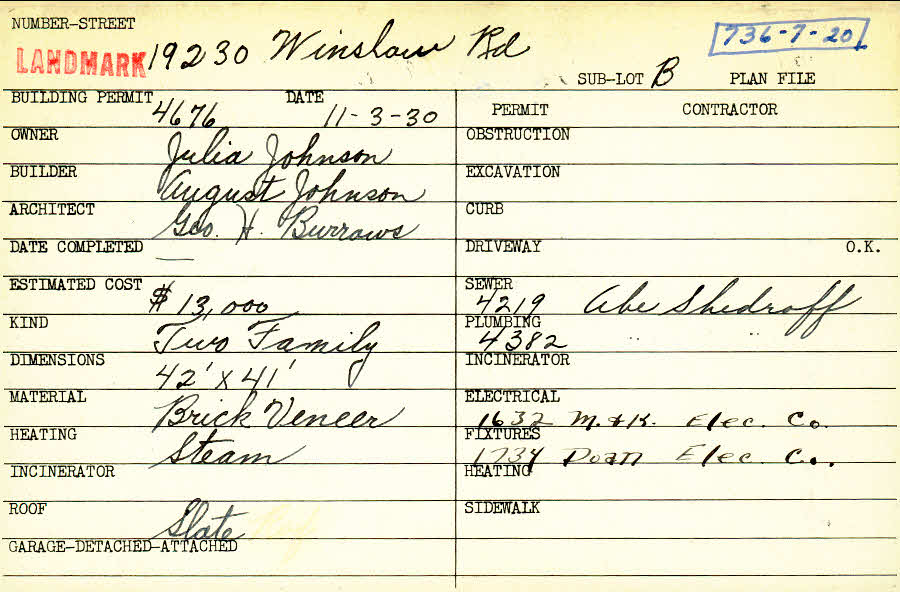 NUMBER-STREET
LANDMARK 19230 Winslow Rd
736-7-20
SUB-LOT B PLAN FILE
BUILDING PERMIT 4676 DATE 11-3-30
OWNER Julia Johnson
BUILDER August Johnson
ARCHITECT Geo. H. Burrows
DATE COMPLETED —
ESTIMATED COST $13,000
KIND Two Family
DIMENSIONS 42' x 41'
MATERIAL Brick Veneer
HEATING Steam
INCINERATOR
ROOF Slate
GARAGE-DETACHED-ATTACHED
PERMIT CONTRACTOR
OBSTRUCTION
EXCAVATION
CURB
DRIVEWAY O.K.
SEWER 4219 Abe Shedroff
PLUMBING 4382
INCINERATOR
ELECTRICAL 1632 M.&K. Elec. Co.
FIXTURES 1734 Doan Elec. Co.
HEATING
SIDEWALK